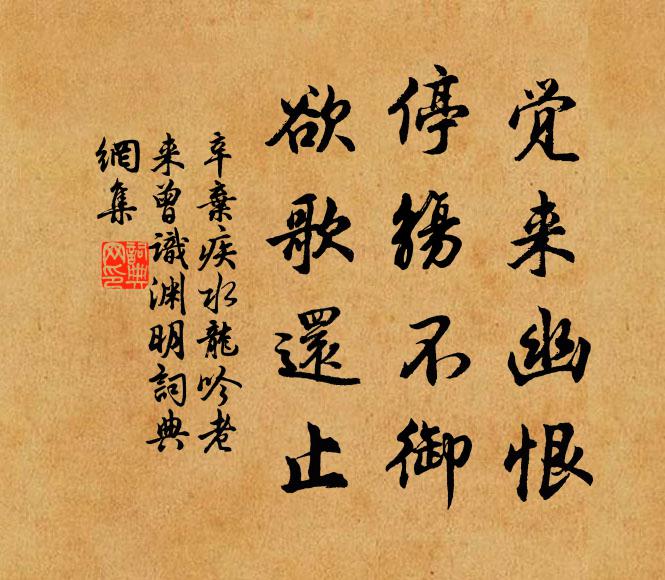 觉来幽恨
停觴不御
欲歌還止
辛棄疾水龍吟老
来曾識渊明詞典
網集
詞典
网印